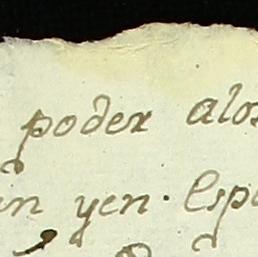 poder alos
in yen. Esp